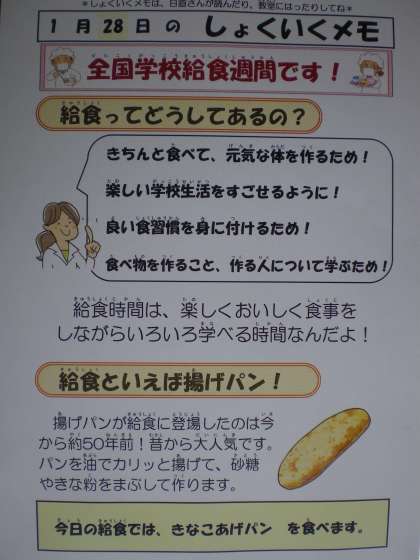 ＊しょくいくメモは、日直さんが読んだり、教室にはったりしてね＊
1月28日の しょくいくメモ
全国学校給食週間です！
給食ってどうしてあるの？
きちんと食べて、元気な体を作るため！
楽しい学校生活をすごせるように！
良い食習慣を身に付けるため！
食べ物を作ること、作る人について学ぶため！
給食時間は、楽しくおいしく食事を
しながらいろいろ学べる時間なんだよ！
給食といえば揚げパン！
揚げパンが給食に登場したのは今
から約50年前！昔から大人気です。
パンを油でカリッと揚げて、砂糖
やきな粉をまぶして作ります。
今日の給食では、きなこあげパン を食べます。